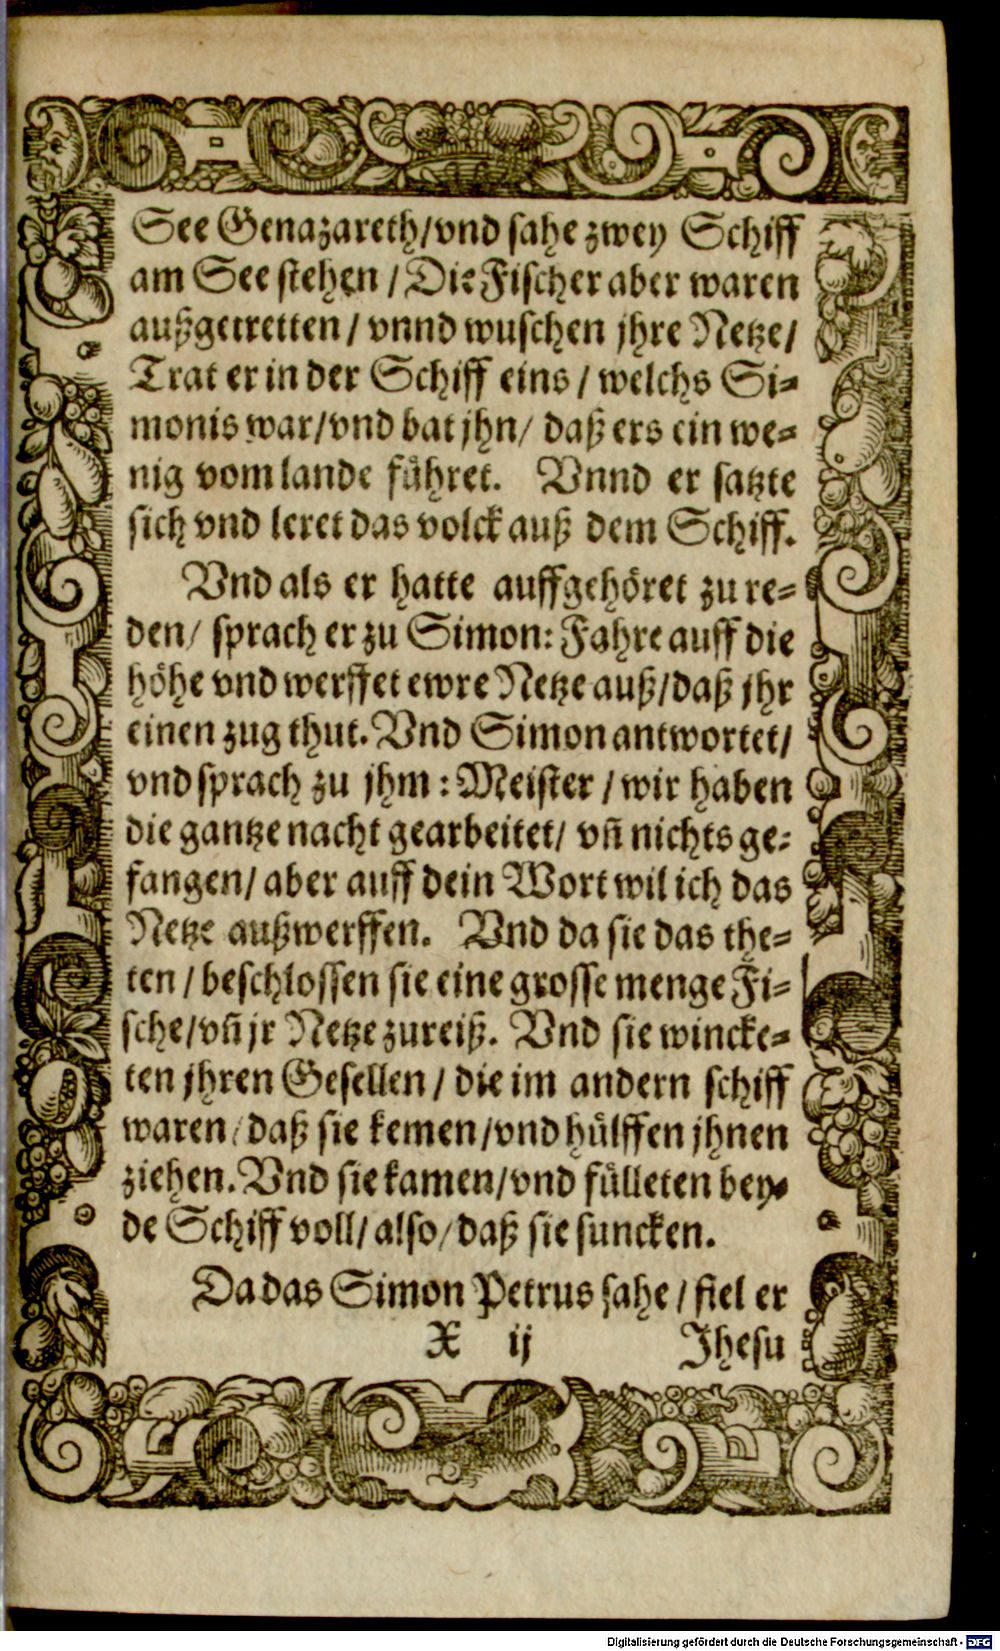 See Genazareth/vnd sahe zwey Schiff
am See stehen / Die Fischer aber waren
außgetretten / vnnd wuschen jhre Netze/
Trat er in der Schiff eins / welchs Si-
monis war/vnd bat jhn/ daß ers ein we-
nig vom lande führet. Vnnd er satzte
sich vnd leret das volck auß dem Schiff.
Vnd als er hatte auffgehöret zu re-
den/ sprach er zu Simon: Fahre auff die
höhe vnd werffet ewre Netze auß/daß jhr
einen zug thut. Vnd Simon antwortet/
vnd sprach zu jhm : Meister / wir haben
die gantze nacht gearbeitet/ vñ nichts ge-
fangen/ aber auff dein Wort wil ich das
Netze außwerffen. Vnd da sie das the-
ten / beschlossen sie eine grosse menge Fi-
sche/vñ jr Netze zureiß. Vnd sie wincke-
ten jhren Gesellen / die im andern schiff
waren/daß sie kemen/vnd hülffen jhnen
ziehen. Vnd sie kamen/vnd fülleten bey-
de Schiff voll/ also/daß sie suncken.
Da das Simon Petrus sahe / fiel er
X ij Jhesu
Digitalisierung gefördert durch die Deutsche Forschungsgemeinschaft - DFG